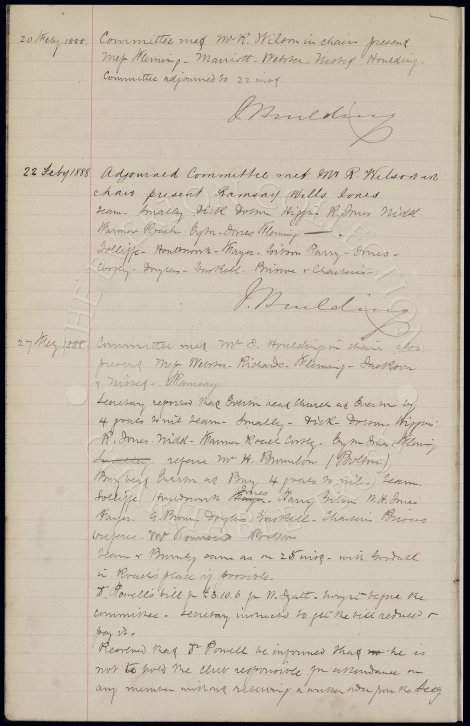 20 Feby 1888 Committee met Mr R. Wilson in chair present
Mess Fleming - Marriott - Webster - Nisbet - Houlding
Committee adjourned to 22 inst
J Houlding
22 Feby 1888 Adjourned Committee met Mr R Wilson in
chair present Ramsay Wills Jones
Team - Smalley Dick Dobson Higgins R. Jones Nidd
Warmer Roach Evton - Jones Fleming
Jolliffe - Howarth - Fayer - Gibson Parry - Jones -
Corey - Douglas - Gaskell - Briscoe & Chadwick -
J. Houlding
27 Feby 1888 Committee met Mr E. Houlding in chair also
present Mess Webster - Richards - Fleming - Jackson
& Nisbet - Ramsay
Secretary reported that Everton beat Church at Everton by
4 goals to nil team - Smalley - Dick Dobson Higgins
R. Jones Nidd - Warmer Roach Corey - Jones - Fleming
Smalley referee Mr H. (Bolton)
Bury Everton at Bury 4 goals to nil Team
Jolliffe Jones Fayer Parry Gibson W. H. Jones
Fayer G. Douglas Gaskell - Chadwick Briscoe
referee Mr Bolton
Team v Burnley same as on 25 inst - with
in Roach's place if possible.
Dr. Powell's bill for £3.10.6 for W. brought before the
committee - Secretary instructed to get the bill reduced &
pay it -
Resolved that Dr Powell be informed that he is
not to hold the club responsible for attendance on
any member without receiving a written order from the Secy